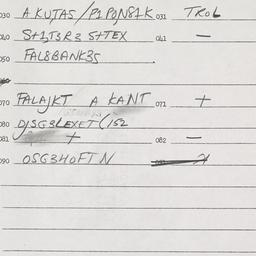 030 AKUTAS/P1PQN81K 031 TROL
040 S+1T3R3 S+TEX 041 —
050 FAL8BANK35
070 PALAJKT A KANT 071 +
080 DJSG3LEXET(152
081 + 082 —
090 OSG340FTN